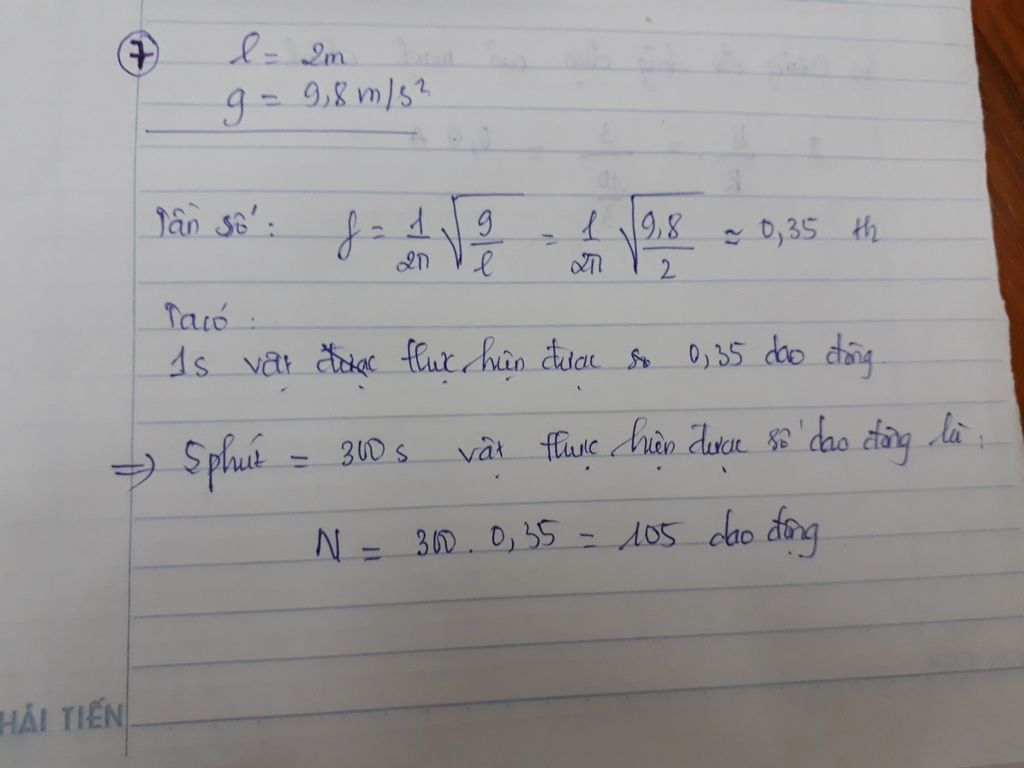 7 l = 2m
g = 9,8 m/s²
Tần số: f = 1/2π √(g/l) = 1/2π √(9,8/2) ≈ 0,35 Hz
Ta có:
1s vật được thực hiện được số 0,35 dao động
=> 5 phút = 300 s vật thực hiện được số dao động là:
N = 300 . 0,35 = 105 dao động
HẢI TIẾN